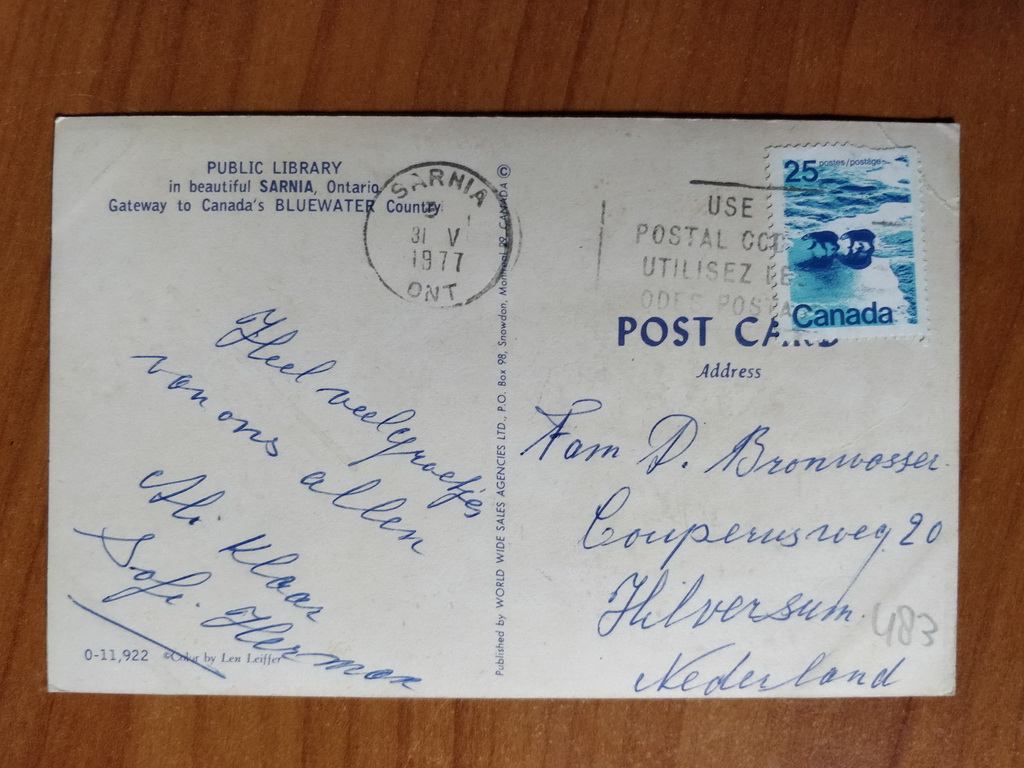 PUBLIC LIBRARY
in beautiful SARNIA, Ontario
Gateway to Canada's BLUEWATER Country
SARNIA
31 V
1977
ONT
Heel veel groetjes
van ons allen
Ab. Klaar
Sofi. Herman
0-11,922 ©Color by Len Leiffer
Published by WORLD WIDE SALES AGENCIES LTD., P.O. Box 98, Snowdon, Montreal 29 CANADA ©
USE
POSTAL COD
UTILISEZ LE
ODES POSTA
25 postes/postage
Canada
POST CARD
Address
Fam D. Bronwasser.
Couperusweg 20
Hilversum.
Nederland
483